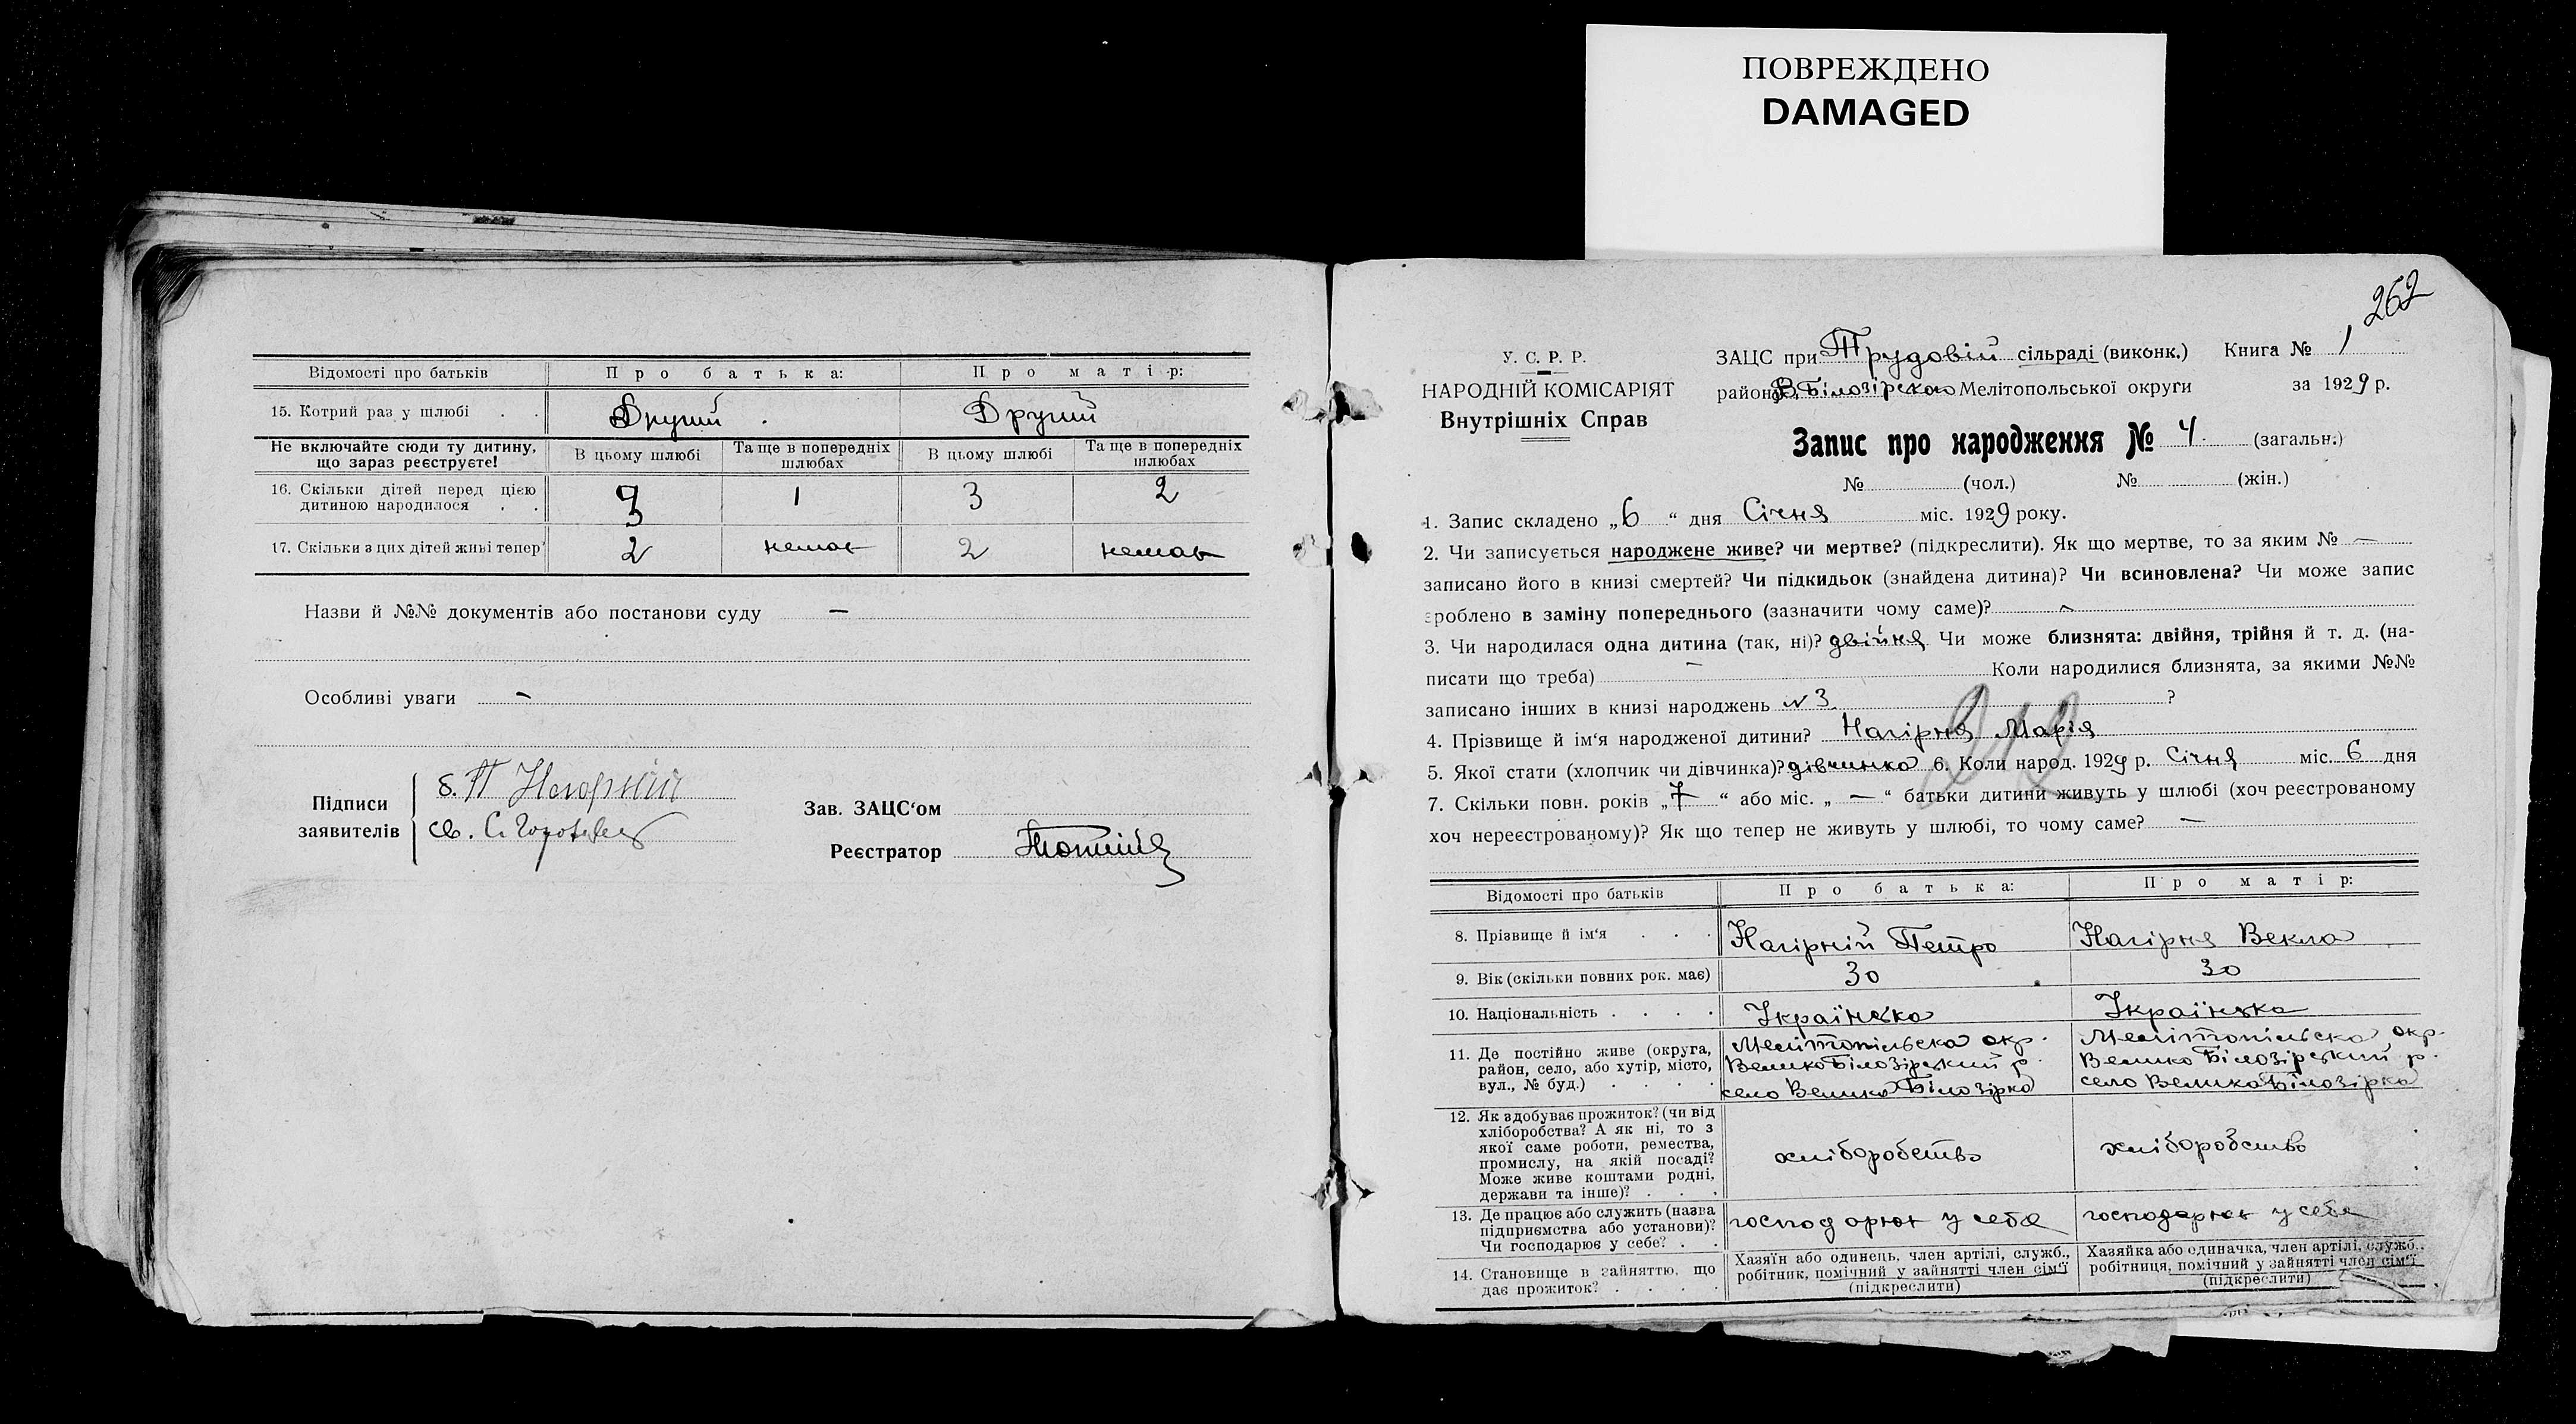 ПОВРЕЖДЕНО
DAMAGED
Відомості про батьків Про батька: Про матір:
15. Котрий раз у шлюбі . . Другий . Другий
Не включайте сюди ту дитину, що зараз реєструєте! В цьому шлюбі Та ще в попередніх шлюбах В цьому шлюбі Та ще в попередніх шлюбах
16. Скільки дітей перед цією
дитиною народилося . . 3 1 3 2
17. Скільки з цих дітей живі тепер? 2 немає 2 немає
Назви й №№ документів або постанови суду —
Особливі уваги —
Підписи
заявителів
б. П Нагорний
св. С.
Зав. ЗАЦС‘ом
Реєстратор
262
У. С. Р. Р.
НАРОДНІЙ КОМІСАРІЯТ
Внутрішніх Справ
ЗАЦС при Трудовій сільраді (виконк.) Книга № 1
району В. Білозірского Мелітопольської округи за 1929 р.
Запис про народження № 4. (загальн.)
№ (чол.) № (жін.)
1. Запис складено „6“ дня Січня міс. 1929 року.
2. Чи записується народжене живе? чи мертве? (підкреслити). Як що мертве, то за яким № —
записано його в книзі смертей? Чи підкидьок (знайдена дитина)? Чи всиновлена? Чи може запис
зроблено в заміну попереднього (зазначити чому саме)? —
3. Чи народилася одна дитина (так, ні)? двійня Чи може близнята: двійня, трійня й т. д. (на-
писати що треба) — Коли народилися близнята, за якими №№
записано інших в книзі народжень N 3 ?
4. Прізвище й ім‘я народженої дитини? Нагірня Марія
5. Якої стати (хлопчик чи дівчинка)? дівчинка 6. Коли народ. 1929 р. Січня міс. 6 дня
7. Скільки повн. років „7“ або міс. „—“ батьки дитини живуть у шлюбі (хоч реєстрованому
хоч нереєстрованому)? Як що тепер не живуть у шлюбі, то чому саме? —
Відомості про батьків Про батька: Про матір:
8. Прізвище й ім‘я . . . Нагірній Петро Нагірня Векла
9. Вік (скільки повних рок. має) 30 30
10. Національність . . . . Українська Українська
11. Де постійно живе (округа,
район, село, або хутір, місто,
вул., № буд.) . . . .
Мелітопільска окр.
Велико Білозірский р.
село Велика Білозірка
Мелітопільска окр.
Велико Білозірский р.
село Велика Білозірка
12. Як здобуває прожиток? (чи від
хліборобства? А як ні, то з
якої саме роботи, ремества,
промислу, на якій посаді?
Може живе коштами родні,
держави та інше)? . . .
хліборобство хліборобство
13. Де працює або служить (назва
підприємства або установи)?
Чи господарює у себе? . .
господарює у себе господарює у себе
14. Становище в зайняттю, що
дає прожиток? . . . .
Хазяїн або одинець, член артілі, служб.,
робітник, помічний у зайнятті член сім‘ї
(підкреслити)
Хазяйка або одиначка, член артілі, служб.,
робітниця, помічний у зайнятті член сім‘ї
(підкреслити)